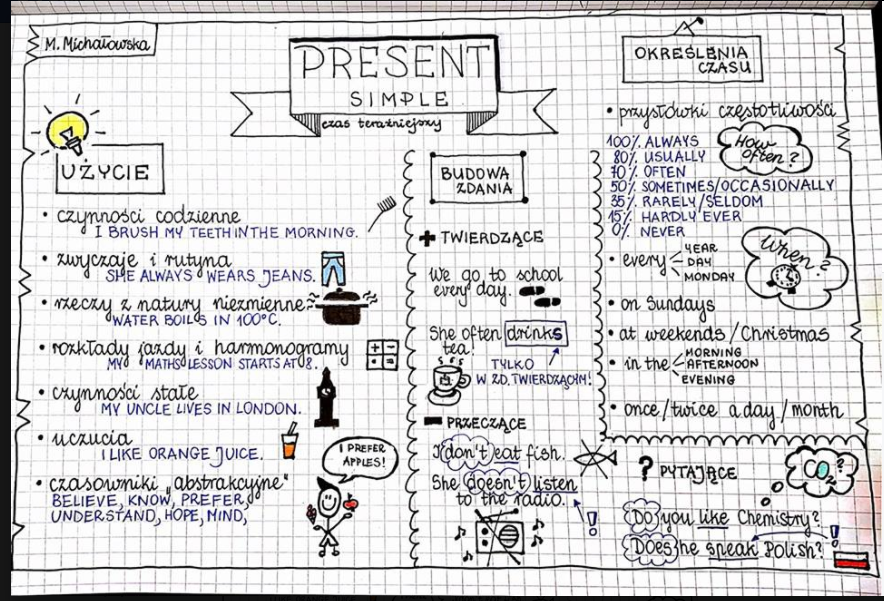 M. Michałowska
PRESENT
SIMPLE
czas teraźniejszy
UŻYCIE
• czynności codzienne
I BRUSH MY TEETH IN THE MORNING.
• zwyczaje i rutyna
SHE ALWAYS WEARS JEANS.
• rzeczy z natury niezmienne
WATER BOILS IN 100°C.
• rozkłady jazdy i harmonogramy
MY MATHS LESSON STARTS AT 8.
• czynności stałe
MY UNCLE LIVES IN LONDON.
• uczucia
I LIKE ORANGE JUICE.
• czasowniki „abstrakcyjne"
BELIEVE, KNOW, PREFER,
UNDERSTAND, HOPE, MIND,
I PREFER
APPLES!
BUDOWA
ZDANIA
+ TWIERDZĄCE
We go to school
every day.
She often drinks
tea!
TYLKO
W ZD. TWIERDZĄCYM!
- PRZECZĄCE
I don't eat fish.
She doesn't listen
to the radio.
!
OKREŚLENIA
CZASU
• przysłówki częstotliwości
How
often?
100% ALWAYS
80% USUALLY
70% OFTEN
50% SOMETIMES/OCCASIONALLY
35% RARELY/SELDOM
15% HARDLY EVER
0% NEVER
When?
• every YEAR
DAY
MONDAY
• on Sundays
• at weekends/Christmas
• in the MORNING
AFTERNOON
EVENING
• once/twice a day/month
? PYTAJĄCE
CO₂?
Do you like Chemistry?
!
Does he speak Polish?